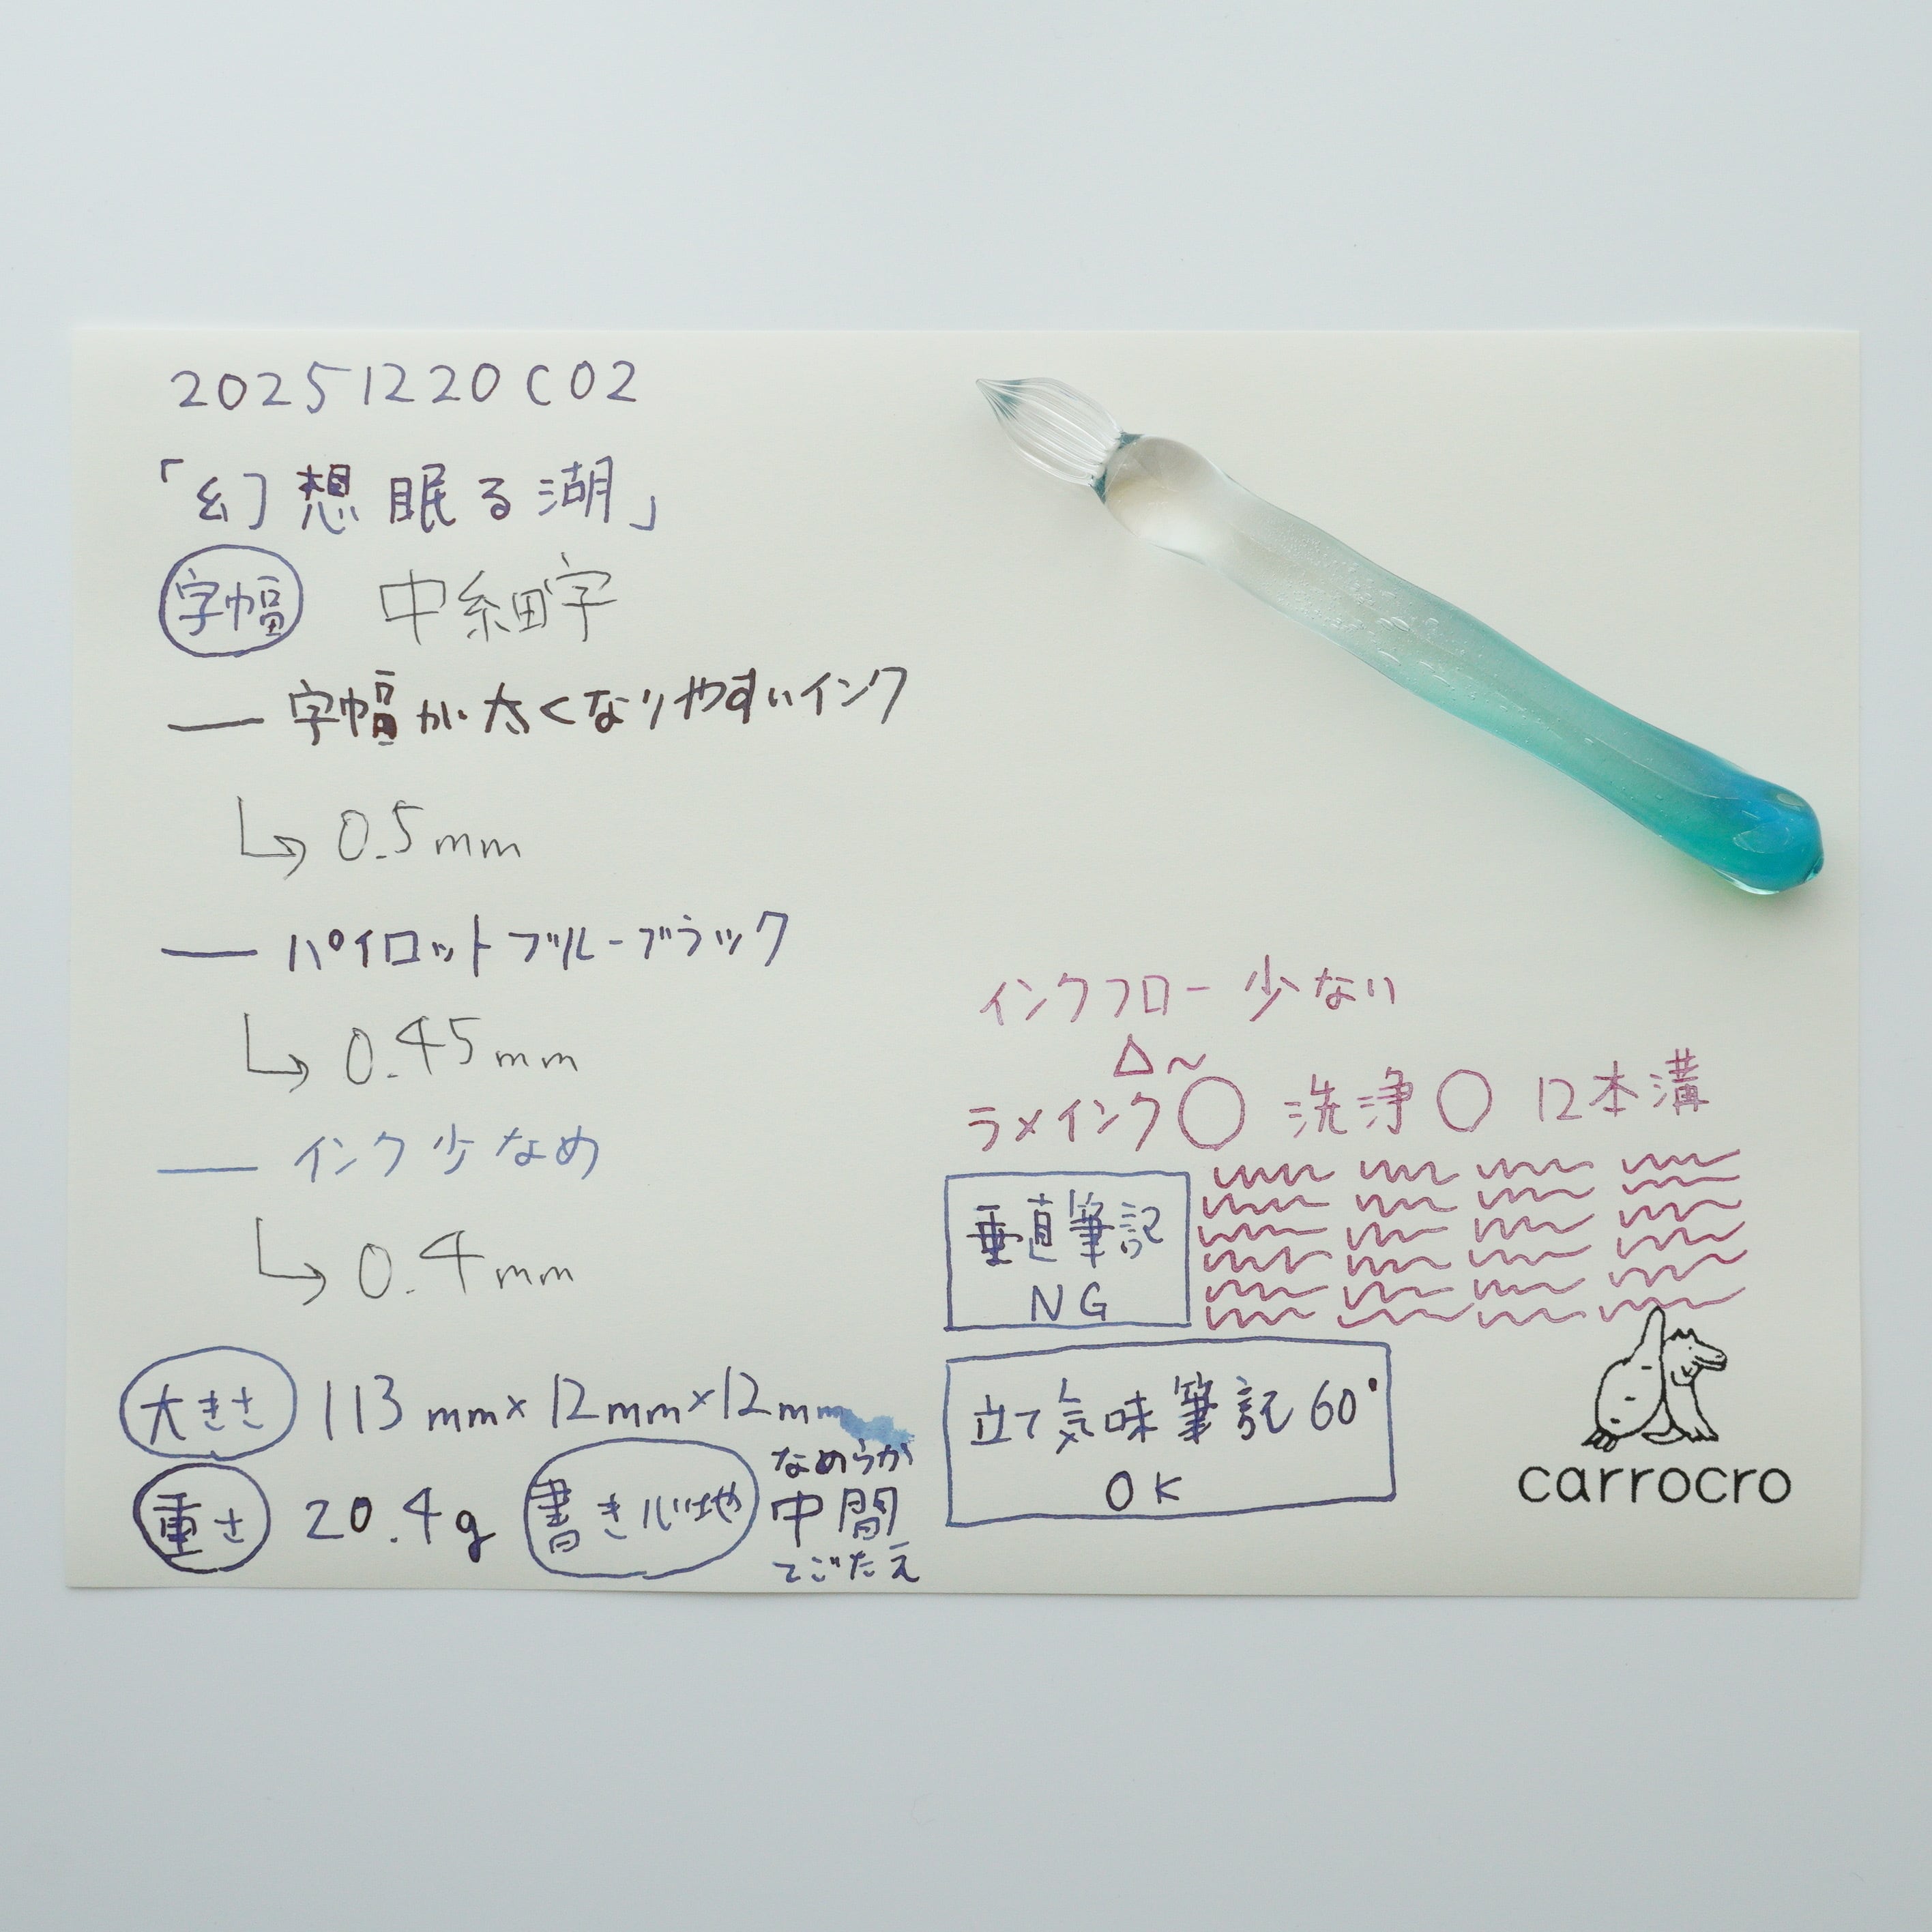 20251220C02
「幻想眠る湖」
字幅 中細字
字幅が太くなりやすいインク
0.5mm
パイロットブルーブラック
0.45mm
インク少なめ
0.4mm
大きさ 113mm×12mm×12mm
重さ 20.4g 書き心地 なめらか
中間
てごたえ
インクフロー少ない
△〜
ラメインク○ 洗浄○ 12本溝
垂直筆記
NG
立て気味筆記60°
OK
carrocro